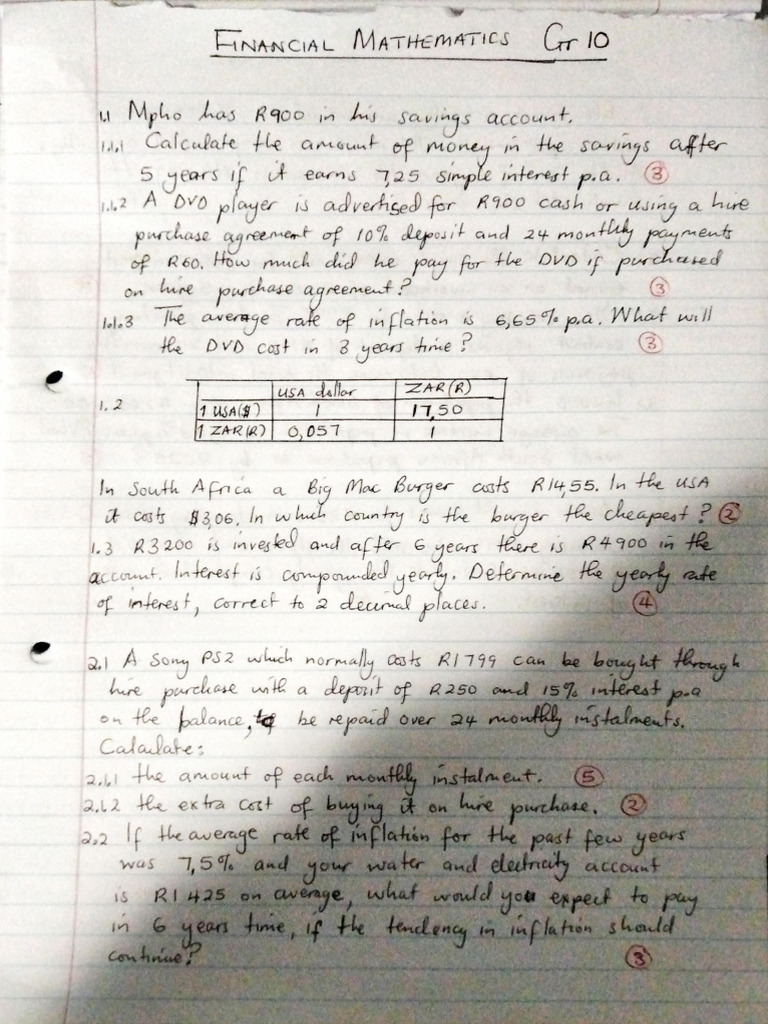 FINANCIAL MATHEMATICS Gr 10
1.1 Mpho has R900 in his savings account.
1.1.1 Calculate the amount of money in the savings after
5 years if it earns 7,25 simple interest p.a. (3)
1.1.2 A DVD player is advertised for R900 cash or using a hire
purchase agreement of 10% deposit and 24 monthly payments
of R60. How much did he pay for the DVD if purchased
on hire purchase agreement? (3)
1.1.3 The average rate of inflation is 6,65% p.a. What will
the DVD cost in 3 years time? (3)
1.2
USA dollar ZAR (R)
1 USA($) 1 17,50
1 ZAR (R) 0,057 1
In South Africa a Big Mac Burger costs R14,55. In the USA
it costs $3,06. In which country is the burger the cheapest? (2)
1.3 R3200 is invested and after 6 years there is R4900 in the
account. Interest is compounded yearly. Determine the yearly rate
of interest, correct to 2 decimal places. (4)
2.1 A Sony PS2 which normally costs R1799 can be bought through
hire purchase with a deposit of R250 and 15% interest p.a
on the balance, to be repaid over 24 monthly instalments.
Calculate:
2.1.1 the amount of each monthly instalment. (5)
2.1.2 the extra cost of buying it on hire purchase. (2)
2.2 If the average rate of inflation for the past few years
was 7,5% and your water and electricity account
is R1 425 on average, what would you expect to pay
in 6 years time, if the tendency in inflation should
continue? (3)